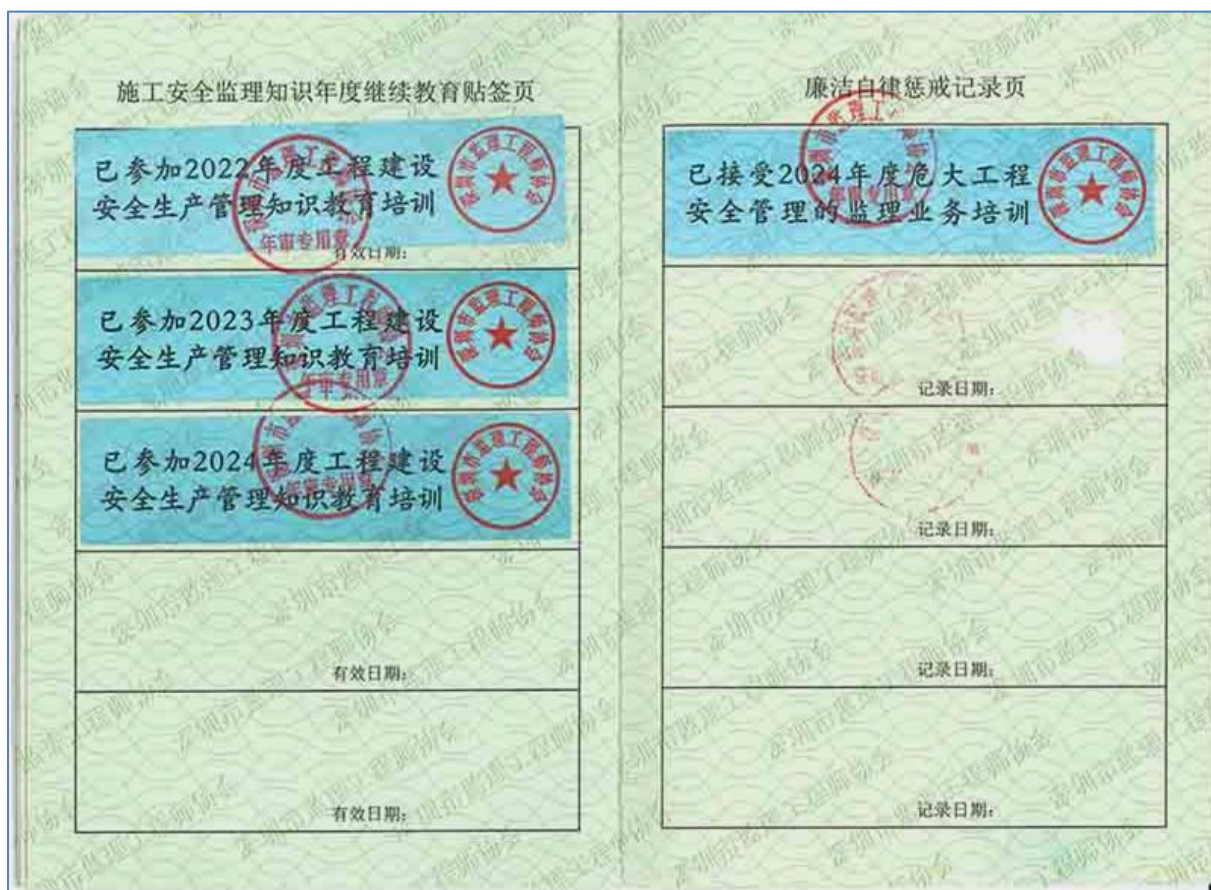 施工安全监理知识年度继续教育贴签页
已参加2022年度工程建设
安全生产管理知识教育培训
深圳市监理工程师协会
年审专用章
有效日期:
已参加2023年度工程建设
安全生产管理知识教育培训
深圳市监理工程师协会
年审专用章
已参加2024年度工程建设
安全生产管理知识教育培训
深圳市监理工程师协会
年审专用章
有效日期:
有效日期:
廉洁自律惩戒记录页
已接受2024年度危大工程
安全管理的监理业务培训
深圳市监理工程师协会
年审专用章
记录日期:
记录日期:
记录日期:
记录日期:
深圳市监理工程师协会